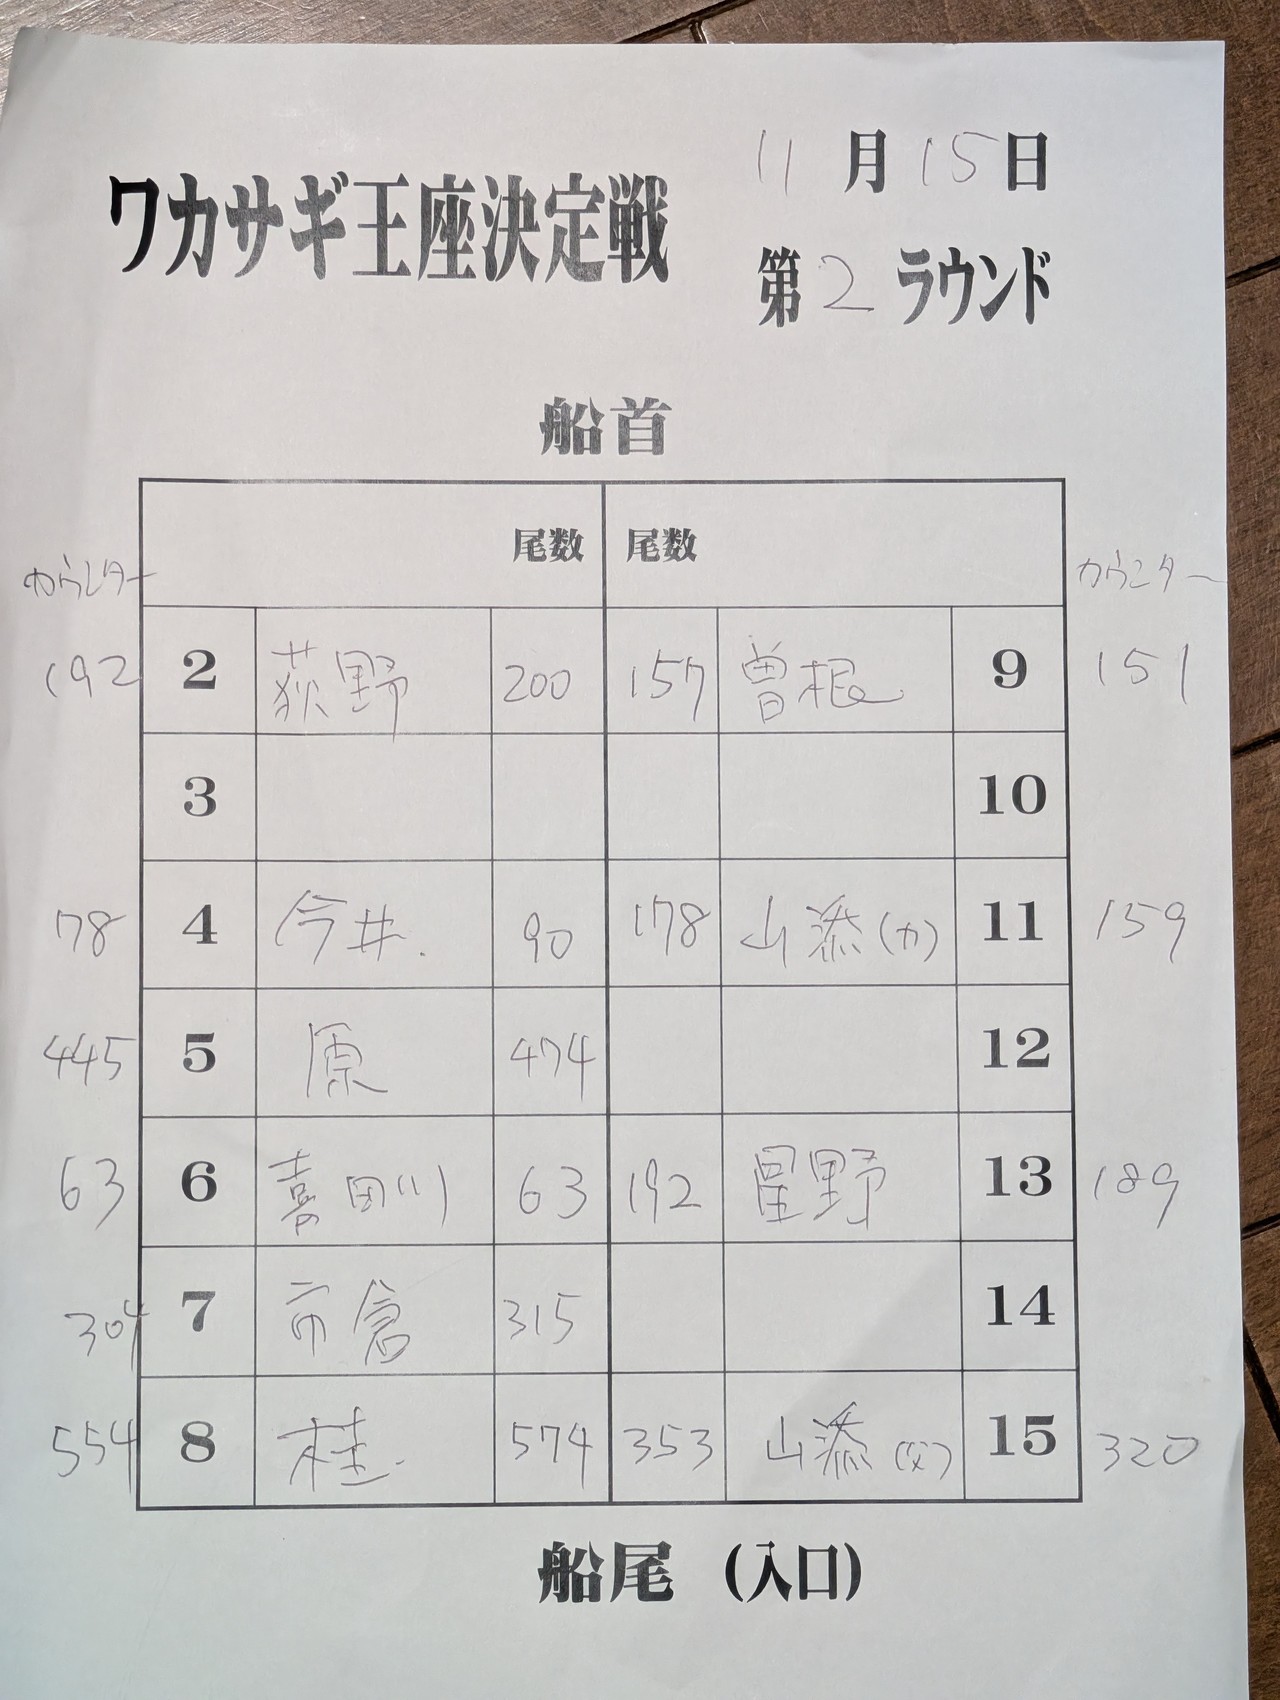 11月15日
ワカサギ王座決定戦
第2ラウンド
船首
尾数 尾数
カウンター カウンター
192 2 荻野 200 157 曽根 9 151
3 10
78 4 今井. 90 178 山添(カ) 11 159
445 5 原 474 12
63 6 喜田川 63 192 星野 13 189
304 7 市倉 315 14
554 8 桂. 574 353 山添(父) 15 320
船尾 (入口)